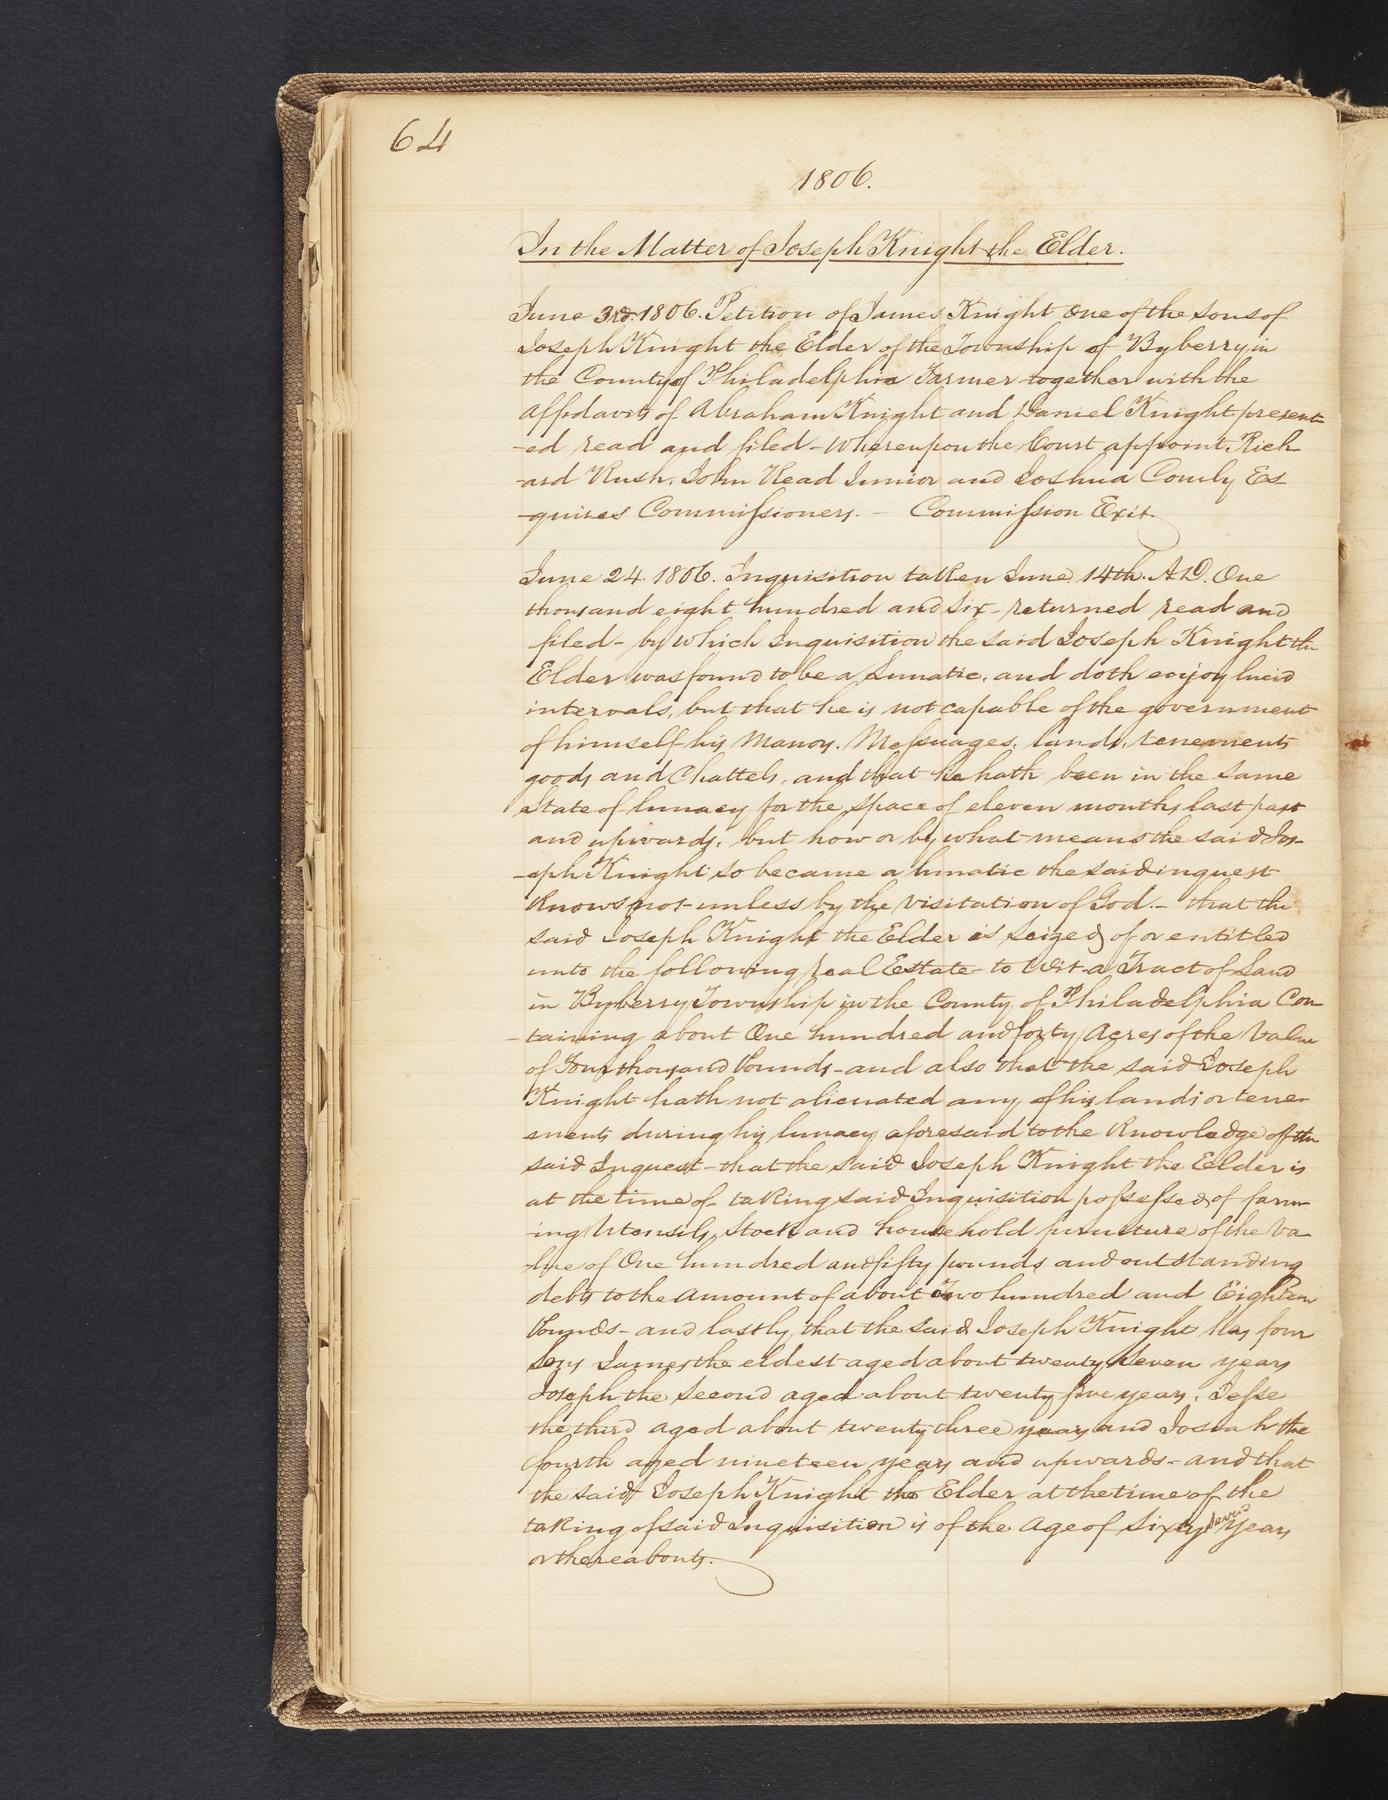 64
1806.
In the Matter of Joseph Knight the Elder.
June 3rd. 1806. Petition of James Knight one of the sons of
Joseph Knight the Elder of the Township of Byberry in
the County of Philadelphia Farmer together with the
affidavits of Abraham Knight and Daniel Knight present
-ed read and filed - Whereupon the Court appoint Rich
-ard Rush, John Read Junior and Joshua Comly Es
-quires Commissioners. - Commission Exit.
June 24. 1806. Inquisition taken June 14th. A.D. One
thousand eight hundred and six - returned read and
filed - by which Inquisition the said Joseph Knight the
Elder was found to be a Lunatic, and doth enjoy lucid
intervals, but that he is not capable of the government
of himself his Manors, Messuages, lands, tenements
goods and Chattels, and that he hath been in the same
State of lunacy for the space of eleven months last past
and upwards, but how or by what means the said Jos-
-eph Knight so became a lunatic the said inquest
knows not - unless by the visitation of God. - that the
said Joseph Knight the Elder is seized of or entitled
unto the following real Estate - to Wit - a Tract of Land
in Byberry Township in the County of Philadelphia Con
-taining about One hundred and forty Acres of the Value
of Four thousand Pounds - and also that the said Joseph
Knight hath not alienated any of his lands or tene-
ments during his lunacy aforesaid to the knowledge of the
said Inquest - that the said Joseph Knight the Elder is
at the time of taking said Inquisition possessed of farm
-ing Utensils, Stock and household furniture of the Va-
-lue of One hundred and fifty pounds and outstanding
debts to the amount of about Two hundred and Eighteen
Pounds - and lastly, that the said Joseph Knight has four
Sons James the eldest aged about twenty seven years
Joseph the Second aged about twenty five years, Jesse
the third aged about twenty three years and Josiah the
fourth aged nineteen years and upwards - and that
the said Joseph Knight the Elder at the time of the
taking of said Inquisition is of the Age of Sixty seven Years
or thereabouts.